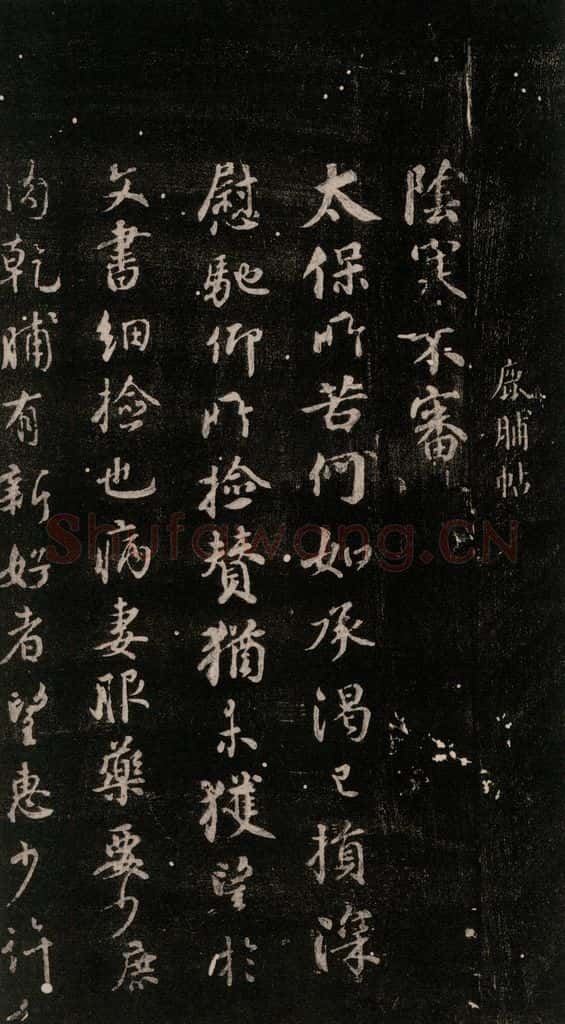 鹿脯帖
陰寒不審
太保所苦何如承渴已損深
慰馳仰所撿贊猶未獲望於
文書細撿也病妻服藥要少鹿
肉乾脯有新好者望惠少許
Shufawang.CN